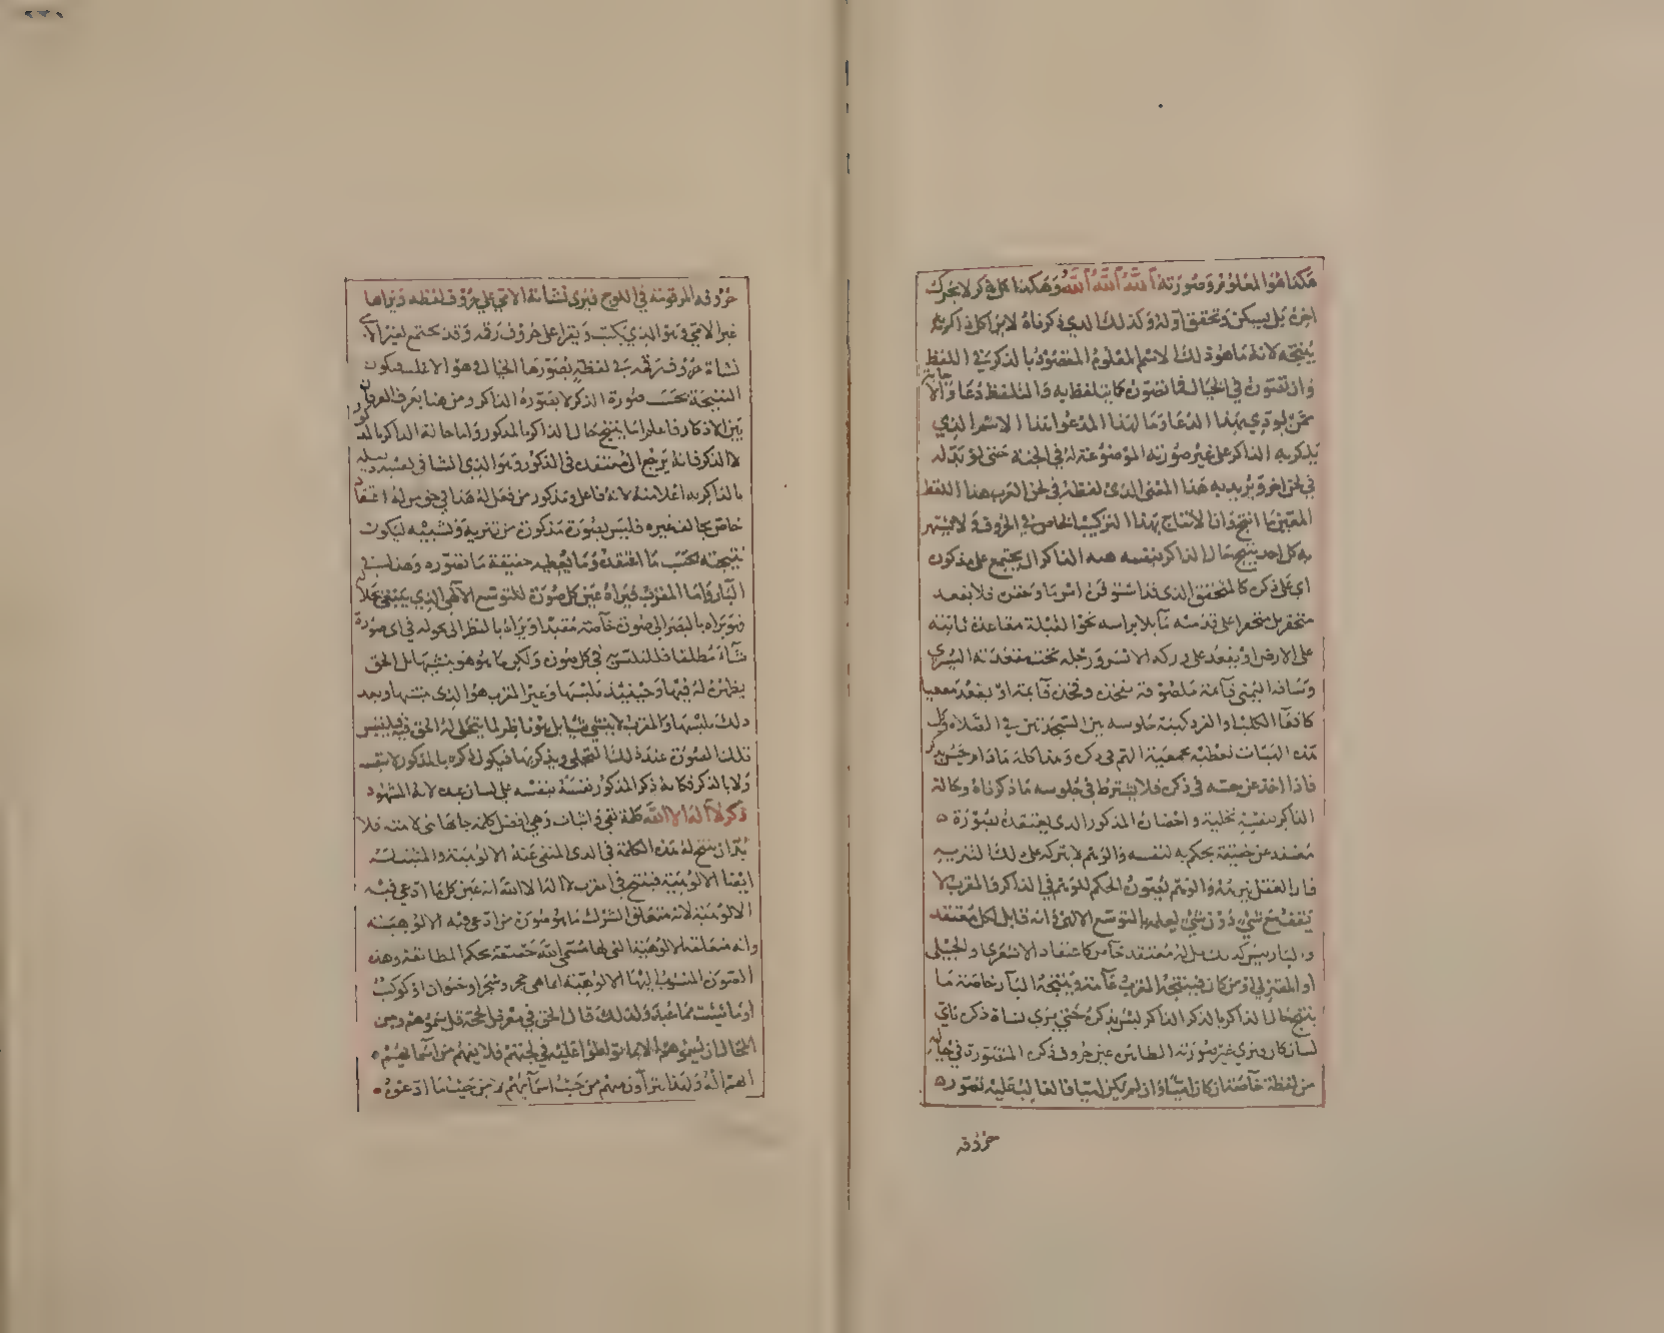 هكذا هو المعلوم وصورته الله الله الله وهكذا كل ذكر لا يحرك
اخره بل يسكن وتحقق اوله وكذلك الذي ذكرناه لابد لكل ذاكر
ينتجه لانه ما هو ذلك الاسم المعلوم المقصود بالذكر في اللفظ
وان تصوره في الخيال فما تصوره كما يتلفظ به والتلفظ دعا والا
بمن يودي بهذا الدعا وما لهذا المدعو بهذا الاسم الذي
يذكر به الذاكر على غير صورته الموضوعة له في الجنة حتى لو بدله
في لحن اخر ويريد به هذا المعنى الذي لفظه في لحن العرب هذا اللفظ
المعين ما انتج وانما الانتاج بهذا التركيب الخاص في الحروف ولا
به كل احد ينتج حال الذاكر بنفسه همه الذاكر ان يجتمع على مذكوره
اي على ذكره كالمتحقق الذي قد استوفزه امر ما وحقره فلا يقعد
على الارض او يقعد على وركه الايسر ورجله تحت مقعدته اليسرى
وساقه اليمنى قائمة ملصوقة بفخذه وفخذه قائمة او يقعد مقعيا
كاقعا الكلب او القرد كهيئة جلوسه بين السجدتين في الصلاة وكل
هذه الهيات تعطيه جمعية الهم في ذكره وهذا كله ما دام
فاذا اخذ عن حسه في ذكره فلا يشترط في جلوسه ما ذكرناه وحالة
الذاكر بنفسه تخلية واحضار المذكور الذي يعتقده بصورة
معتقد عن حقيقة يحكم به لنفسه والوهم لا يتركه على ذلك التنزيه
فان العقل ينزهه والوهم يصوره الحكم للوهم في الذاكر فالمقرب لا
يقف مع شي دون شي لعلمه بالتوسع الالهي وانه قابل لكل معتقد
والبار ليس كذلك بل له معتقد خاص كاعتقاد الاشعري والحنبلي
او المعتزلي او من كان فينتجه المقرب عامة وينتجه البار خاصة ما
ينتج حال الذاكر بالذكر الذاكر ليس يذكره حتى يرى نشأة ذكره باي
لسان كان ويرى غير صورته الطائر عين حروف ذكره المتصورة في خياله
من لفظة خاصة ان كان اميا وان لم يكن اميا فالغالب عليه تصوره
حروفه
حروفه المرقومة في اللوح فيرى نشأته الامي على حروف لفظه ويراها
غير الامي وهو الذي يكتب ويقرا على حروف رقمه وقد تجتمع لغير الامي
نشاة حروف رقمه في لفظه يصورها الخيال وهو الاغلب فيكون
النتيجة بحسب صورة الذكر لا بصورة الذاكر ومن هنا يعرف الفرقان
بين الاذكار فاعلم اما ينتج حال الذاكر بالمذكور واما حالة الذاكر بالمذكور
لا الذكر فانه يرجع الى معتقده في المذكور وهو الذي انشا في نفسه
بالذاكر به اعلامنه لانه فاعل ومذكور منفعل له هذا في حق من له اعتقاد
خاص بما لغيره فليس بصورة مذكوره من تنزيه وتشبيه ليكون
نتيجته بحسب ما اعتقده وما يعطيه حقيقة ما تصوره وهذا
البار واما المقرب فيراه عين كل صورة للتوسع الالهي الذي
فهو يراه بالبصر الى صورة خاصة مقيدا ويراه بالنظر الى قوله في اي صورة
شاء مطلقا فللتلبس في كل صورة ولكن ما هو هو ينشيها بل الحق
يظهره له فيها وحينيذ يلبسها وغير المقرب هو الذي ينشيها وبعد
ذلك يلبسها والمقرب لا ينشي شيا بل هو ناظر لما يتجلى له الحق فيه فيلبس
تلك الصورة عند ذلك التجلي ويذكر بها فيكون ذكره بالمذكور لا بنفسه
ولا بالذكر فكانه ذكر المذكور نفسه بنفسه على لسان عبده لانه المشهود
ذكر لا اله الا الله كلمة نفي واثبات وهي افضل كلمة جاءها نبي لامته فلا
بد ان ينتج له هذه الكلمة في الذي المنفي عنه الالوهية والمثبت له
ايضا الالوهية فينتج في المقرب لا اله الا الله انه عين كل ما ادعي فيه
الالوهية لانه متعلق الشرك ما هو صورة من ادعي فيه الالوهية
وانه متعلقه الالوهية التي لها مسمى الله حقيقة بحكم المطابقة وهذه
الصورة المنسوب اليها الالوهية انما هي حجر وشجر او حيوان او كوكب
او ما شئت مما عبد ولذلك قال الحق في معرض الحجة قل سموهم ومن
المحال ان يسموهم الا بما تواطؤا عليه في لحنهم فلا يفهم من اسمائهم
انهم اله ولهذا يتبرأون منهم من حيث اسمائهم لا من حيث ما ادعوه